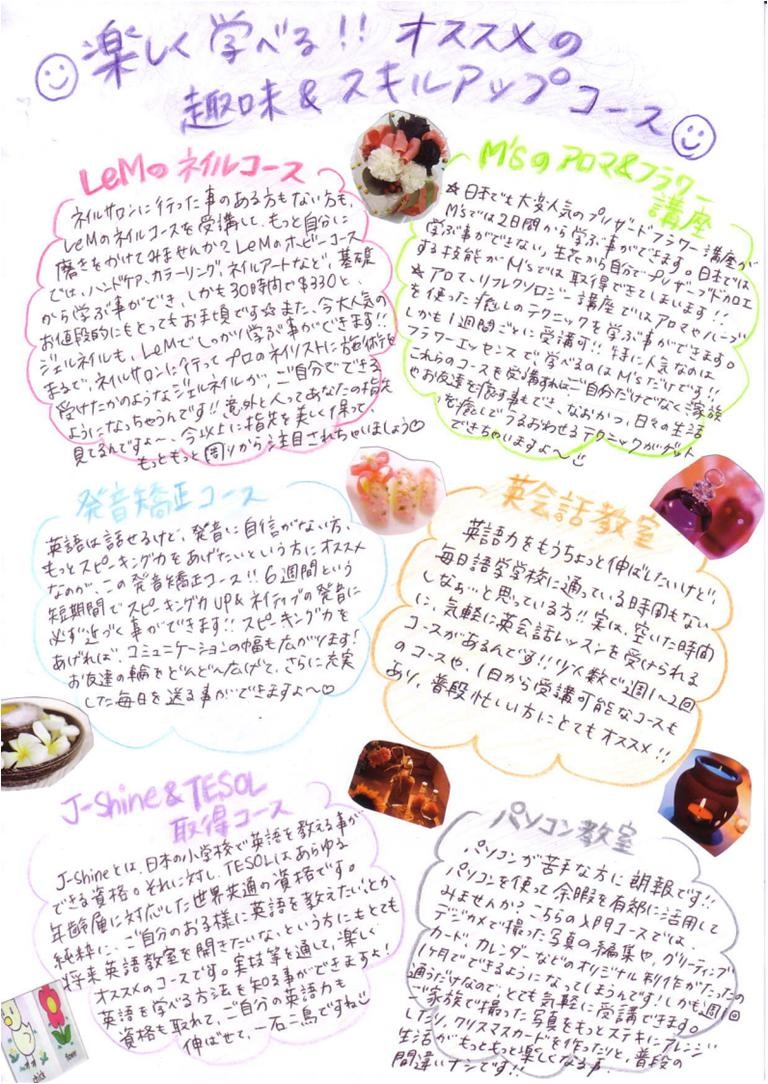 楽しく学べる!! オススメの
趣味&スキルアップコース
LeMのネイルコース
ネイルサロンに行った事のある方もない方も、
LeMのネイルコースを受講して、もっと自分に
磨きをかけてみませんか?LeMのホビーコース
では、ハンドケア、カラーリング、ネイルアートなど、基礎
から学ぶ事ができ、しかも30時間で$330と、
お値段的にもとってもお手頃です☆また、今大人気の
ジェルネイルも、LeMでしっかり学ぶ事ができます!!
まるで、ネイルサロンに行ってプロのネイリストに施術を
受けたかのようなジェルネイルが、ご自分でできる
ようになっちゃうんです!!意外と人ってあなたの指先
見てるんですよ~、今以上に指先を美しく保って
もっともっと周りから注目されちゃいましょう♡
M'sのアロマ&フラワー
講座
★日本でも大変人気のプリザードフラワー講座が
M'sでは2日間から学ぶ事ができます。日本では
学ぶ事ができない、生花から自分でプリザーブド加工
する技能がM'sでは取得できてしまいます!!
★アロマ、リフレクソロジー講座ではアロマやハーブ
を使った癒しのテクニックを学ぶ事ができます。
しかも1週間ごとに受講可!!特に人気なのは
フラワーエッセンスで学べるのはM'sだけです!!
これらのコースを受講すればご自分だけでなくご家族
やお友達を癒す事もでき、なおかつ、日々の生活
を癒しでうるおわせるテクニックがゲット
できちゃいますよ~☺
発音矯正コース
英語は話せるけど、発音に自信がない方、
もっとスピーキング力をあげたいという方にオススメ
なのが、この発音矯正コース!!6週間という
短期間でスピーキング力UP&ネイティブの発音に
必ず近づく事ができます!!スピーキング力を
あげれば、コミュニケーションの幅も広がります!
お友達の輪をどんどん広げて、さらに充実
した毎日を送る事ができますよ~♡
英会話教室
英語力をもうちょっと伸ばしたいけど、
毎日語学学校に通っている時間もない
しなぁ…と思っている方!!実は、空いた時間
に、気軽に英会話レッスンを受けられる
コースがあるんです!!少人数で週1~2回
のコースや、1日から受講可能なコースも
あり、普段忙しい方にとてもオススメ!!
J-Shine&TESOL
取得コース
J-Shineとは、日本の小学校で英語を教える事が
できる資格。それに対し、TESOLはあらゆる
年齢層に対応した世界共通の資格です。
純粋に、ご自分のお子様に英語を教えたい、とか、
将来英語教室を開きたいな、という方にもとても
オススメのコースです。実技等を通して、楽しく
英語を学べる方法を知る事ができますよ!
資格も取れて、ご自分の英語力も
伸ばせて、一石二鳥ですね☺
パソコン教室
パソコンが苦手な方に朗報です!!
パソコンを使って余暇を有効に活用して
みませんか?こちらの入門コースでは、
デジカメで撮った写真の編集や、グリーティング
カード、カレンダーなどのオリジナル制作がたったの
1ヶ月でできるようになってしまうんです!しかも週1回
通うだけなので、とても気軽に受講できます。
ご家族で撮った写真をもっとステキにアレンジ
したり、クリスマスカードを作ったりと、普段の
生活がもっともっと楽しくなる事、
間違いナシです!!